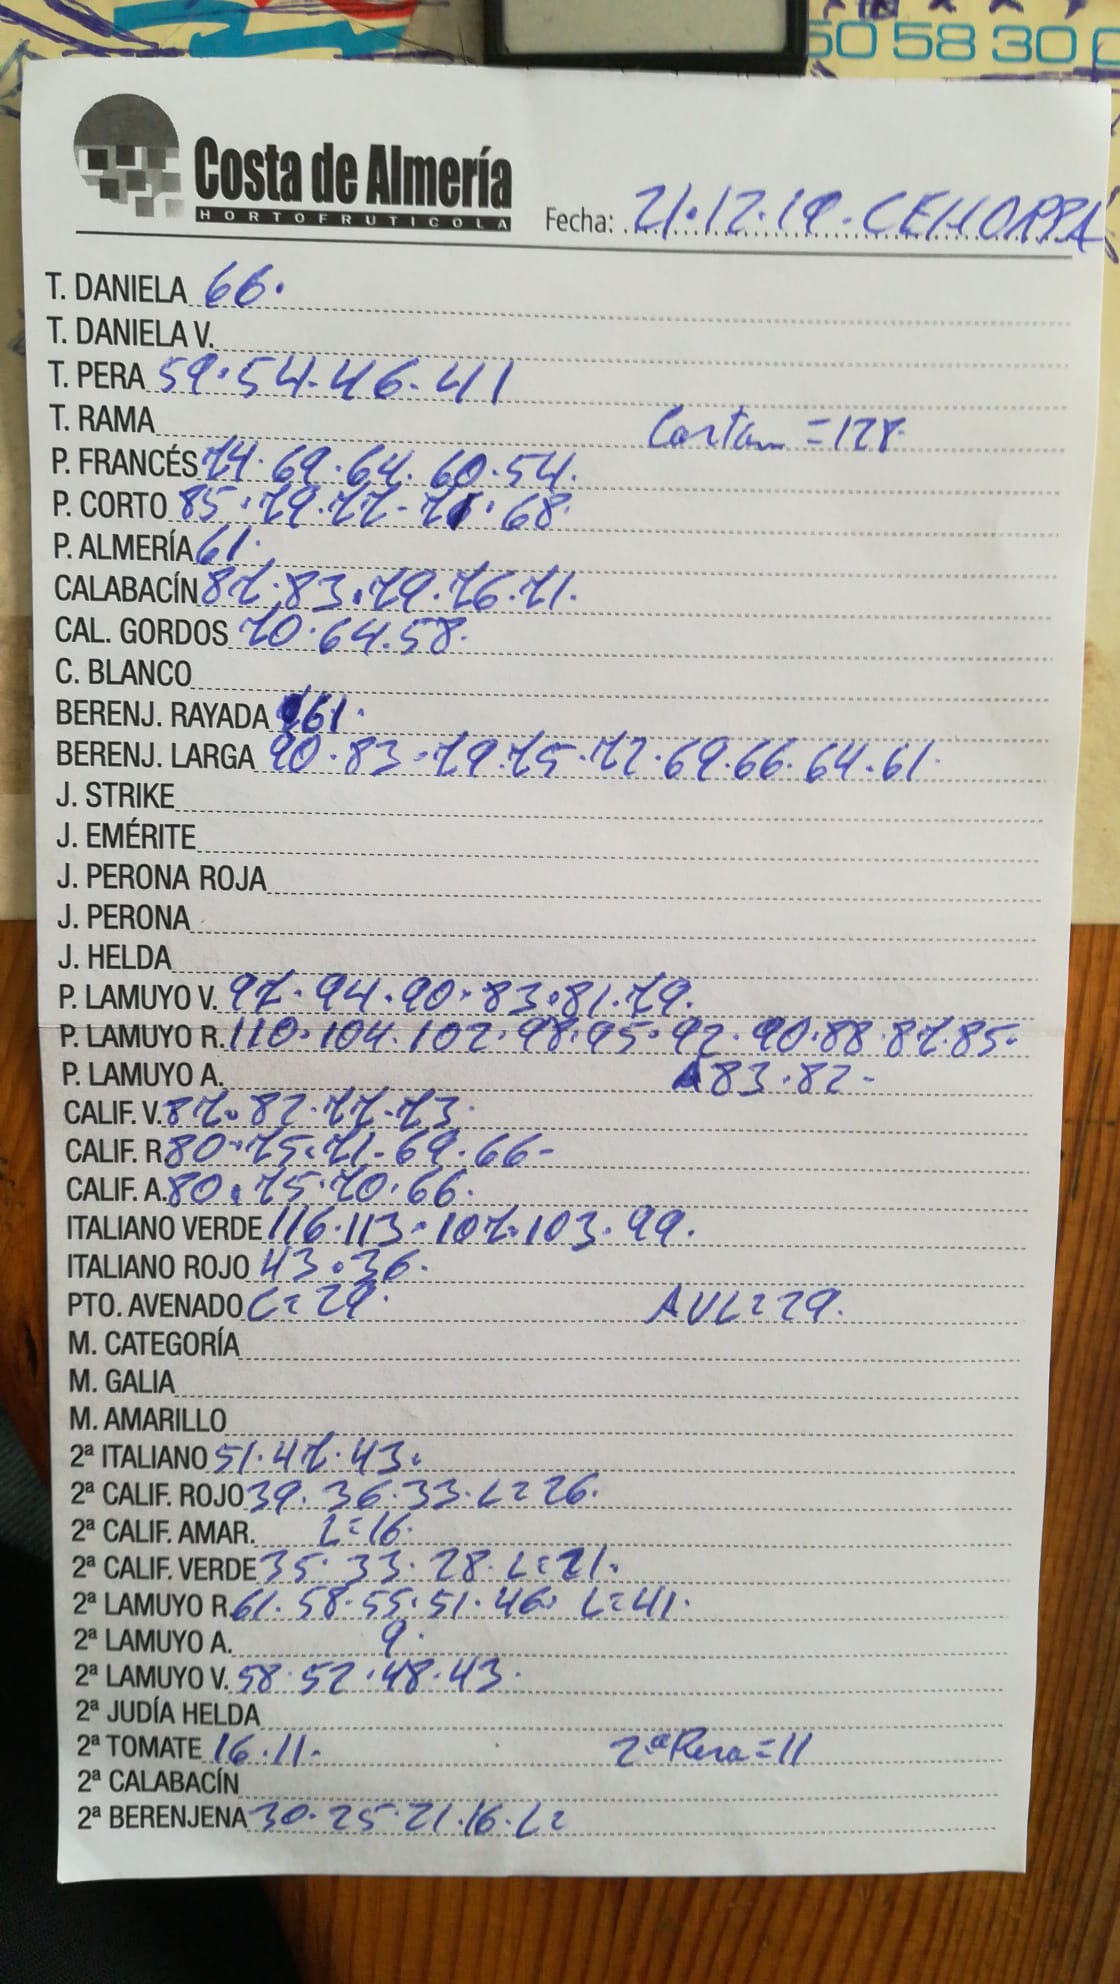 50 58 30
Costa de Almería
HORTOFRUTICOLA
Fecha: 21.12.19. CEHORPA
T. DANIELA 66.
T. DANIELA V.
T. PERA 59.54.46.41
T. RAMA
=128.
P. FRANCÉS 74.69.64.60.54.
P. CORTO 85.79.77-71.68.
P. ALMERÍA 61.
CALABACÍN 87.83.79.76.71.
CAL. GORDOS 70.64.58.
C. BLANCO
BERENJ. RAYADA 61.
BERENJ. LARGA 90.83.79.75.72.69.66.64.61.
J. STRIKE
J. EMÉRITE
J. PERONA ROJA
J. PERONA
J. HELDA
P. LAMUYO V. 97.94.90.83.81.79.
P. LAMUYO R. 110.104.102.98.95.92.90.88.87.85.
P. LAMUYO A. 83.82-
CALIF. V. 87.82.77.73.
CALIF. R 80.75.71-69.66-
CALIF. A. 80.75.70.66.
ITALIANO VERDE 116.113.107.103.99.
ITALIANO ROJO 43.36.
PTO. AVENADO L=29. AVL=29.
M. CATEGORÍA
M. GALIA
M. AMARILLO
2ª ITALIANO 51.47.43.
2ª CALIF. ROJO 39.36.33.L=26.
2ª CALIF. AMAR. L=16.
2ª CALIF. VERDE 35.33.28.L=21.
2ª LAMUYO R. 61.58.55.51.46. L=41.
2ª LAMUYO A. 9.
2ª LAMUYO V. 58.52.48.43.
2ª JUDÍA HELDA
2ª TOMATE 16.11. 2ª Pera=11
2ª CALABACÍN
2ª BERENJENA 30.25.21.16.L=